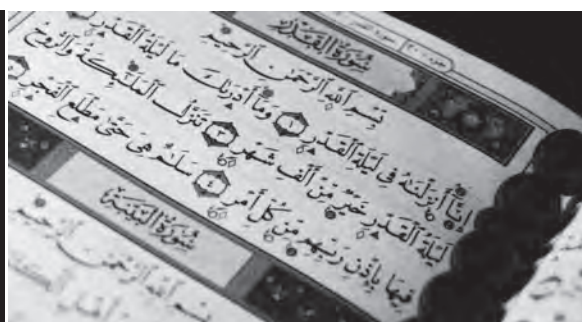 سُورَةُ القَدْرِ
بِسْمِ ٱللَّهِ ٱلرَّحْمَٰنِ ٱلرَّحِيمِ
إِنَّآ أَنزَلْنَٰهُ فِى لَيْلَةِ ٱلْقَدْرِ ١ وَمَآ أَدْرَىٰكَ مَا لَيْلَةُ ٱلْقَدْرِ
لَيْلَةُ ٱلْقَدْرِ خَيْرٌ مِّنْ أَلْفِ شَهْرٍ ٣ تَنَزَّلُ ٱلْمَلَٰٓئِكَةُ وَٱلرُّوحُ
فِيهَا بِإِذْنِ رَبِّهِم مِّن كُلِّ أَمْرٍ ٤ سَلَٰمٌ هِىَ حَتَّىٰ مَطْلَعِ ٱلْفَجْرِ
سُورَةُ البَيِّنَةِ
بِسْمِ ٱللَّهِ ٱلرَّحْمَٰنِ ٱلرَّحِيمِ